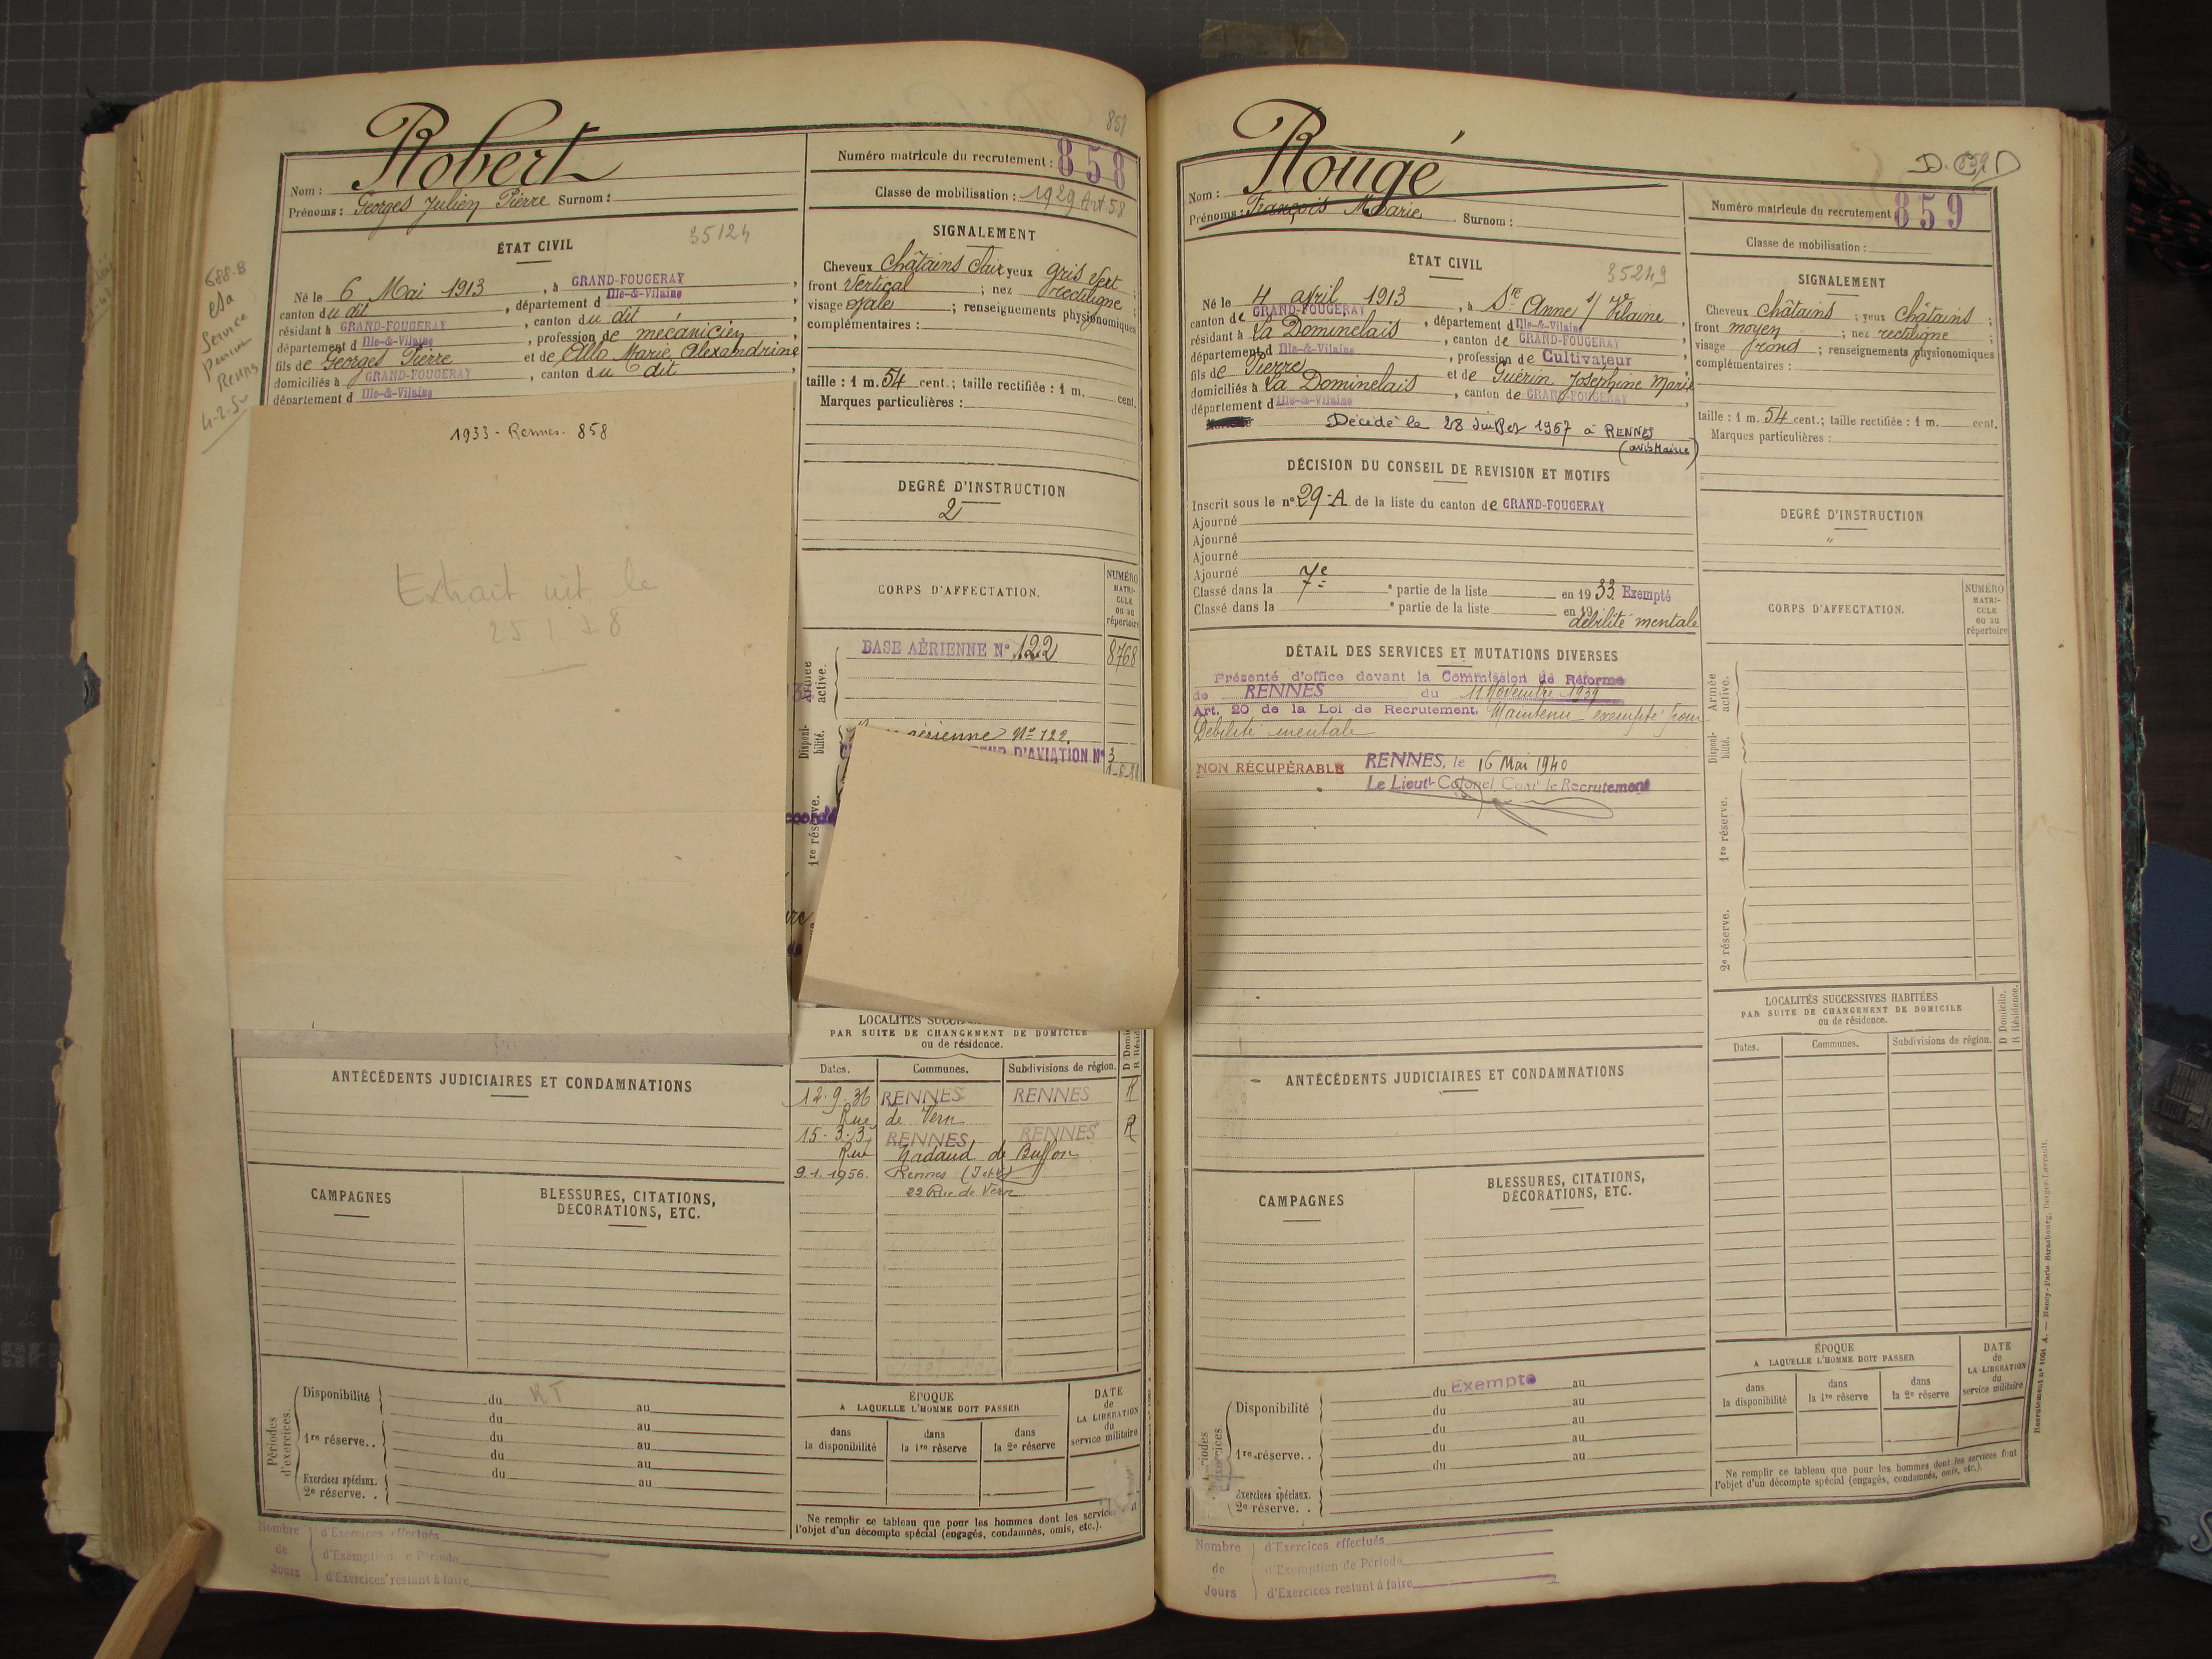 858
Robert
Nom :
Prénoms : Georges Julien Pierre Surnom :
Numéro matricule du recrutement : 858
Classe de mobilisation : 1929 Art 58
ÉTAT CIVIL
35124
Né le 6 Mai 1913, à GRAND-FOUGERAY,
canton du dit, département d Ille-&-Vilaine,
résidant à GRAND-FOUGERAY, canton du dit,
département d Ille-&-Vilaine, profession de mécanicien,
fils de Georges Pierre et de Allo Marie Alexandrine
domiciliés à GRAND-FOUGERAY, canton du dit,
département d Ille-&-Vilaine
Service
Rennes
1933 - Rennes - 858
Extrait
le
SIGNALEMENT
Cheveux Châtains Clair yeux gris vert ;
front Vertical ; nez rectiligne ;
visage ovale ; renseignements physionomiques
complémentaires :
taille : 1 m. 54 cent. ; taille rectifiée : 1 m. cent.
Marques particulières :
DEGRÉ D'INSTRUCTION
2
CORPS D'AFFECTATION.
NUMÉRO
MATRI-
CULE
ou au
répertoire
Armée
active.
BASE AÉRIENNE N° 122
8768
Disponi-
bilité.
aérienne N° 122.
D'AVIATION N° 3
1re réserve.
LOCALITÉS
PAR SUITE DE CHANGEMENT DE DOMICILE
ou de résidence.
Dates. Communes. Subdivisions de région.
12.9.36 RENNES RENNES R
Rue de Vern
15-3-3 RENNES RENNES R
Rue Nadaud de Buffon
9.1.1956. Rennes (I et V)
22 Rue de Vern
ANTÉCÉDENTS JUDICIAIRES ET CONDAMNATIONS
CAMPAGNES
BLESSURES, CITATIONS,
DÉCORATIONS, ETC.
Périodes
d'exercices.
Disponibilité du au
du au
1re réserve.. du au
du au
Exercices spéciaux. du au
2e réserve. .
ÉPOQUE
A LAQUELLE L'HOMME DOIT PASSER
dans
la disponibilité
dans
la 1re réserve
dans
la 2e réserve
DATE
de
LA LIBÉRATION
du
service militaire
Ne remplir ce tableau que pour les hommes dont les services
l'objet d'un décompte spécial (engagés, condamnés, omis, etc.).
Nombre
de
Jours
d'Exercices effectués
d'Exemption de Période
d'Exercices restant à faire
Rougé
Nom :
Prénoms : François Marie Surnom :
Numéro matricule du recrutement 859
Classe de mobilisation :
ÉTAT CIVIL
35249
Né le 4 avril 1913, à Ste Anne s/ Vilaine
canton de GRAND-FOUGERAY, département d Ille-&-Vilaine,
résidant à La Dominelais, canton de GRAND-FOUGERAY,
département d Ille-&-Vilaine, profession de Cultivateur
fils de Pierre et de Guérin Joséphine Marie
domiciliés à La Dominelais, canton de GRAND-FOUGERAY,
département d Ille-&-Vilaine
Décédé le 28 Juillet 1967 à RENNES
(avis Mairie)
SIGNALEMENT
Cheveux Châtains ; yeux Châtains ;
front moyen ; nez rectiligne ;
visage rond ; renseignements physionomiques
complémentaires :
taille : 1 m. 54 cent. ; taille rectifiée : 1 m. cent.
Marques particulières :
DÉCISION DU CONSEIL DE REVISION ET MOTIFS
Inscrit sous le n° 29-A de la liste du canton de GRAND-FOUGERAY
Ajourné
Ajourné
Ajourné
Ajourné
Classé dans la 7e partie de la liste en 1933. Exempté
Classé dans la e partie de la liste en 19
débilité mentale
DEGRÉ D'INSTRUCTION
"
DÉTAIL DES SERVICES ET MUTATIONS DIVERSES
Présenté d'office devant la Commission de Réforme
de RENNES du 11 Novembre 1939
Art. 20 de la Loi de Recrutement. Maintenu exempté pour
Débilité mentale
NON RÉCUPÉRABLE RENNES, le 16 Mai 1940
Le Lieut-Colonel Comt le Recrutement
CORPS D'AFFECTATION.
NUMÉRO
MATRI-
CULE
ou au
répertoire
Armée
active.
Disponi-
bilité.
1re réserve.
2e réserve.
LOCALITÉS SUCCESSIVES HABITÉES
PAR SUITE DE CHANGEMENT DE DOMICILE
ou de résidence.
D Domicile.
R Résidence.
Dates. Communes. Subdivisions de région.
ANTÉCÉDENTS JUDICIAIRES ET CONDAMNATIONS
CAMPAGNES
BLESSURES, CITATIONS,
DÉCORATIONS, ETC.
Disponibilité du Exempté au
du au
du au
1re réserve.. du au
du au
Exercices spéciaux.
2e réserve. .
ÉPOQUE
A LAQUELLE L'HOMME DOIT PASSER
dans
la disponibilité
dans
la 1re réserve
dans
la 2e réserve
DATE
de
LA LIBÉRATION
du
service militaire
Ne remplir ce tableau que pour les hommes dont les services font
l'objet d'un décompte spécial (engagés, condamnés, omis, etc.).
Nombre
de
Jours
d'Exercices effectués
d'Exemption de Période
d'Exercices restant à faire